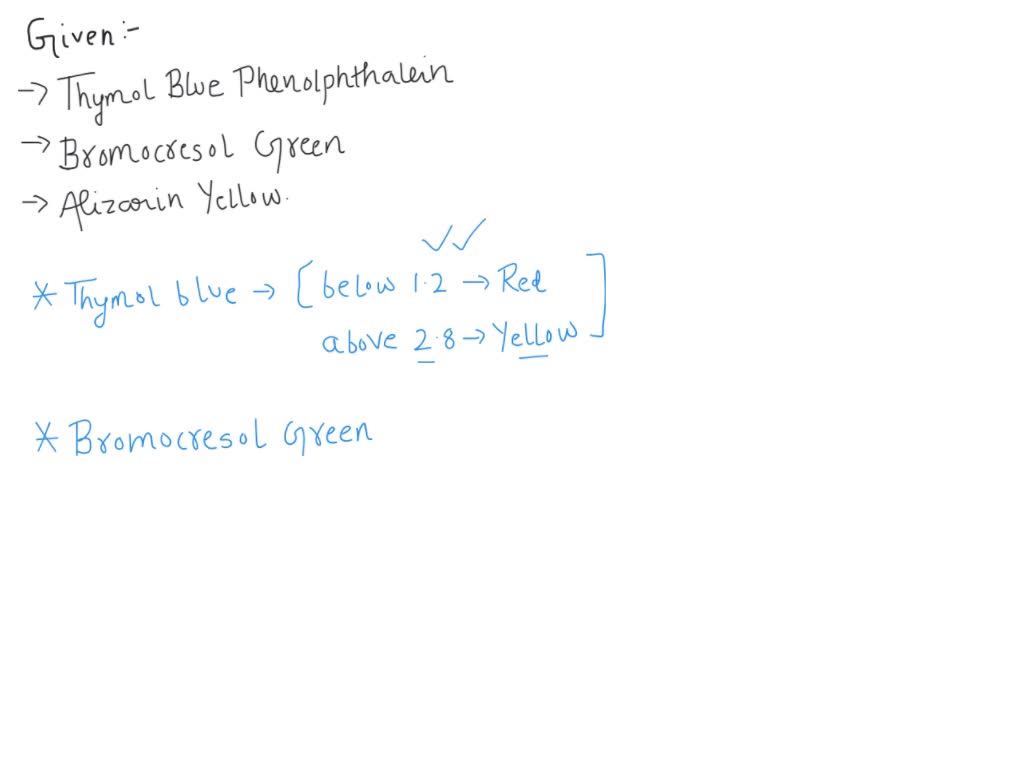 Given:-
→ Thymol Blue Phenolphthalein
→ Bromocresol Green
→ Alizarin Yellow.
* Thymol blue → [below 1.2 → Red
above 2.8 → Yellow]
* Bromocresol Green